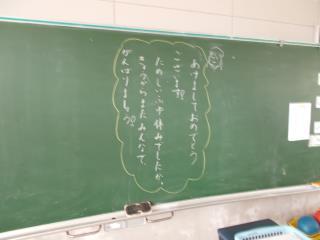 あけまして おめでとう
ございます。
たのしい ふゆ休みでしたか。
きょうから またみんなで、
がんばりましょう。